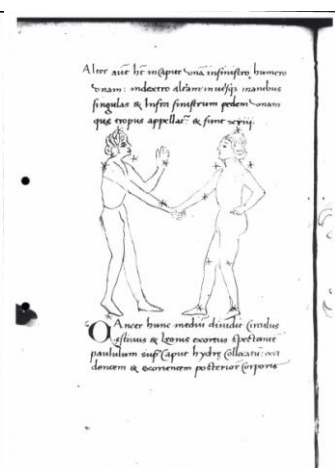 Alter aut̄ h̄t in capite ƚonā insinistro humero
ƚonam: indextro alteram inutisq; manibus
singulas & Infra sinistrum pedem ƚonam
que tropus appellat̄ & sunt
CAncer hunc mediū diuidit Circulus
estiuus & Leonis exortus spectante
paululum sup̄ Caput hydrę Collocatu: occi
dentem & exorientem posteriori Corporis